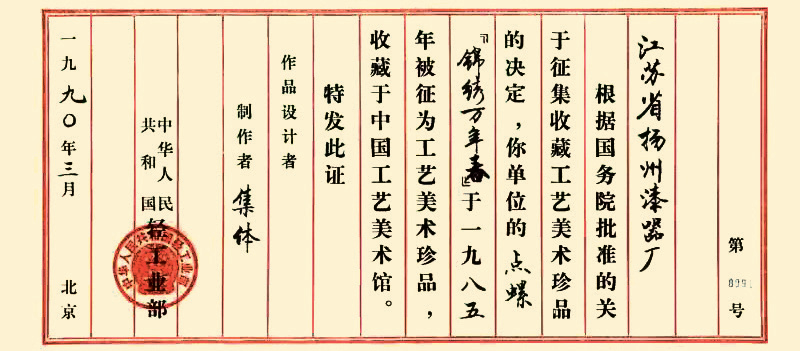 第 号
江苏省扬州漆器厂
根据国务院批准的关
于征集收藏工艺美术珍品
的决定，你单位的点螺
『锦绣万年春』于一九八五
年被征为工艺美术珍品，
收藏于中国工艺美术馆。
特发此证
作品设计者
制作者 集体
中华人民
共和国
轻工业部
中华人民共和国轻工业部
一九九〇年三月 北京